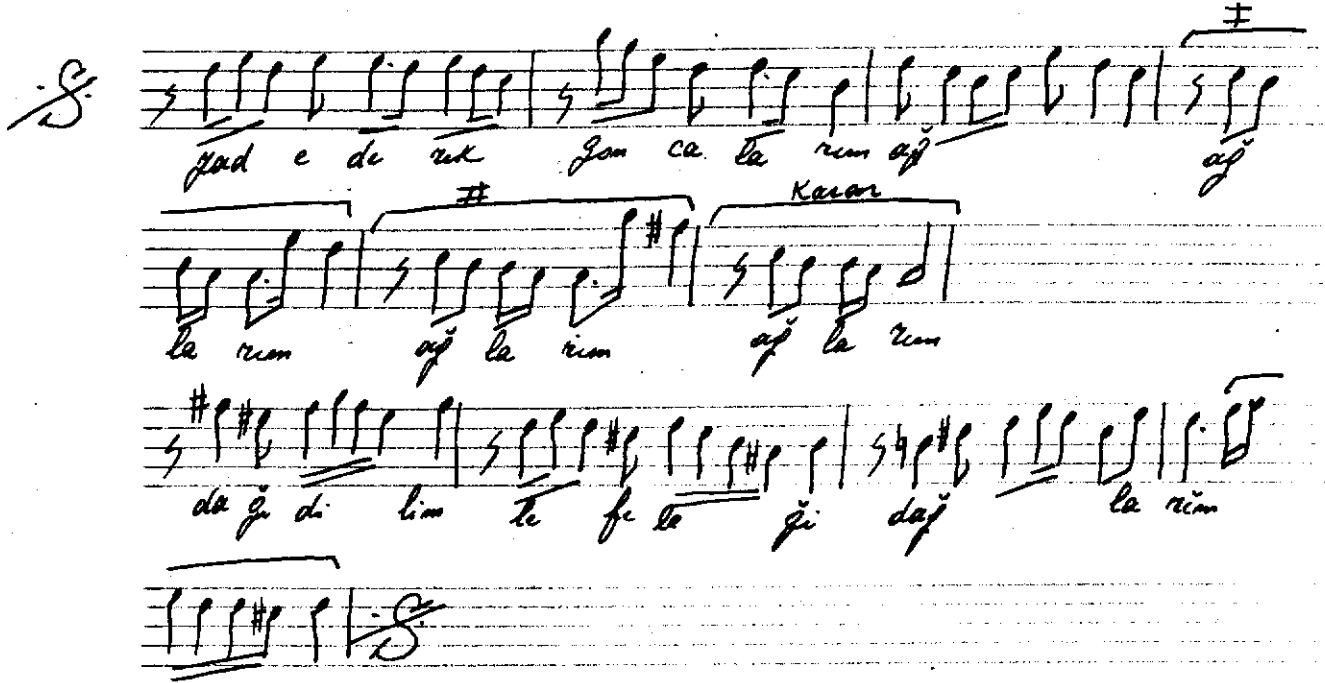 yad e de rek gon ca la rım ağ ağ
Karar
la rım ağ la rım ağ la rım
da ğı di lim le fe le ği dağ la rım